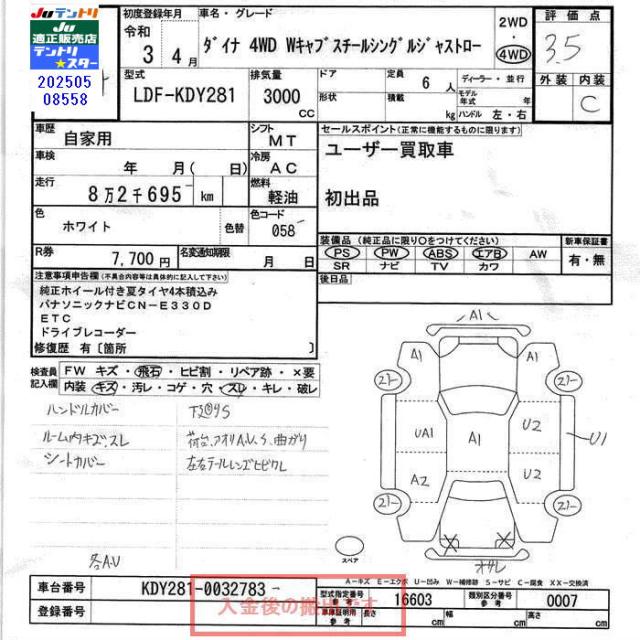 Juテントリ
Ju
適正販売店
テントリ
★スター
202505
08558
初度登録年月
令和
3 年 4 月
車名・グレード
ダイナ 4WD Wキャブスチールシングルジャストロー
2WD
・
4WD
評価点
3.5
型式
LDF-KDY281
排気量
3000
CC
ドア
形状
定員
6 人
積載
kg
ディーラー・並行
モデル年式 年
ハンドル 左・右
外装 内装
C
車歴
自家用
シフト
MT
車検
年 月( 日)
冷房
AC
走行
8万2千695 km
燃料
軽油
色
ホワイト
色替
色コード
058
R券
7,700 円
名変通知期限
月 日
セールスポイント(正常に機能するものに限ります)
ユーザー買取車
初出品
装備品(純正品に限り○をつけてください)
PS・PW・ABS・エアB・AW
SR ナビ TV カワ
新車保証書
有・無
後日品
注意事項申告欄(不具合内容等は具体的に記入して下さい)
純正ホイール付き夏タイヤ4本積込み
パナソニックナビCN-E330D
ETC
ドライブレコーダー
修復歴 有〔箇所 〕
検査員記入欄
FW キズ・飛石・ヒビ割・リペア跡・×要
内装 キズ・汚レ・コゲ・穴・スレ・キレ・破レ
ハンドルカバー
ルーム内キズスレ
シートカバー
荷台、アオリA.U.S.曲がり
左右テールレンズヒビワレ
各A.U
A1
A1 A1
21- 21-
UA1 A1 U2
U1
A2 U2
21- 21-
スペア
オサレ
A-キズ E-エクボ U-凹み W-補修跡 S-サビ C-腐食 XX-交換済
車台番号
KDY281-0032783
登録番号
入金後の搬出です
型式指定番号
参考
16603
類別区分番号
参考
0007
車庫証明用
参考
長さ
cm
幅
cm
高さ
cm